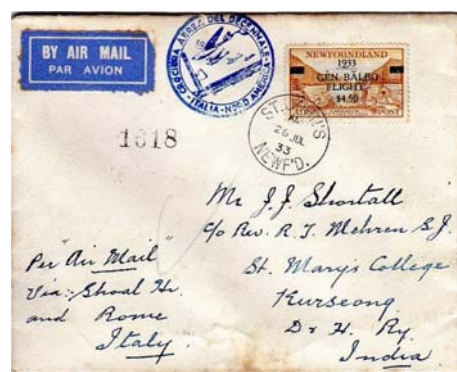 BY AIR MAIL
PAR AVION
CROCIERA AEREA DEL DECENNALE
ITALIA - NORD AMERICA
NEWFOUNDLAND
1933
GEN. BALBO
FLIGHT
$4.50
POST
ST. JOHN'S
26 JUL
33
NEWF'D.
1618
Mr J. J. Shortall
c/o Rev. R. J. Mehren S.J.
St. Mary's College
Kurseong
Dr H. Ry.
India
Per "Air Mail"
Via:- Shoal Hr.
and Rome
Italy.